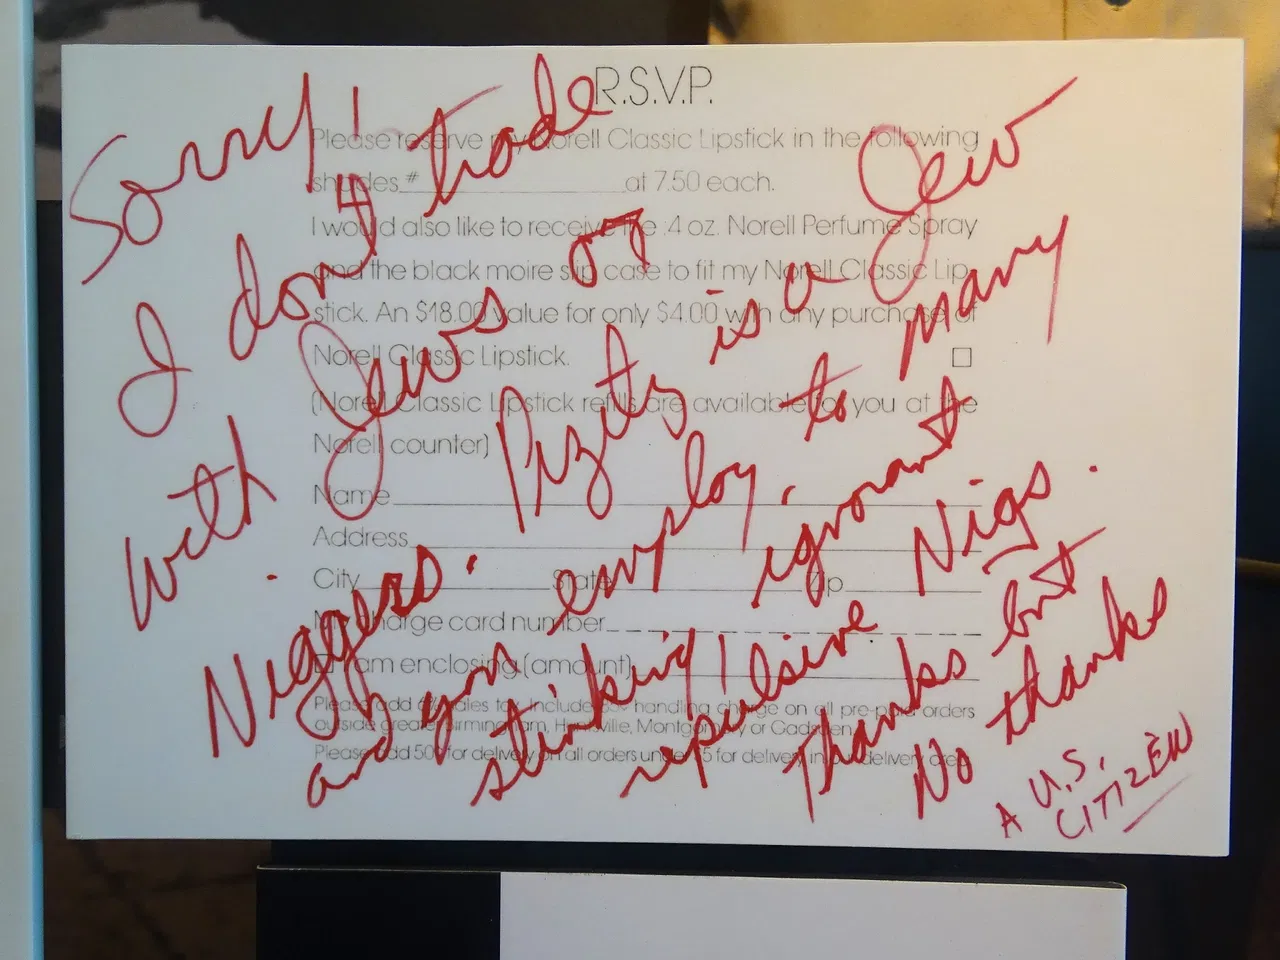 R.S.V.P.
Please reserve my Norell Classic Lipstick in the following
shades # at 7.50 each.
I would also like to receive the .4 oz. Norell Perfume Spray
and the black moire slip case to fit my Norell Classic Lip-
stick. An $18.00 value for only $4.00 with any purchase of
Norell Classic Lipstick.
(Norell Classic Lipstick refills are available for you at the
Norell counter)
Name
Address
City State Zip
My charge card number
I am enclosing (amount)
Please add sales tax. Include handling charge on all pre-paid orders
outside greater Birmingham, Huntsville, Montgomery or Gadsden.
Please add 50¢ for delivery on all orders under for delivery in our delivery area.
Sorry!
I don't trade
with Jews or
Niggers. Pizitz is a Jew
and you employ to many
stinking! ignorant
repulsive Nigs.
Thanks but
No thanks
A U.S.
CITIZEN